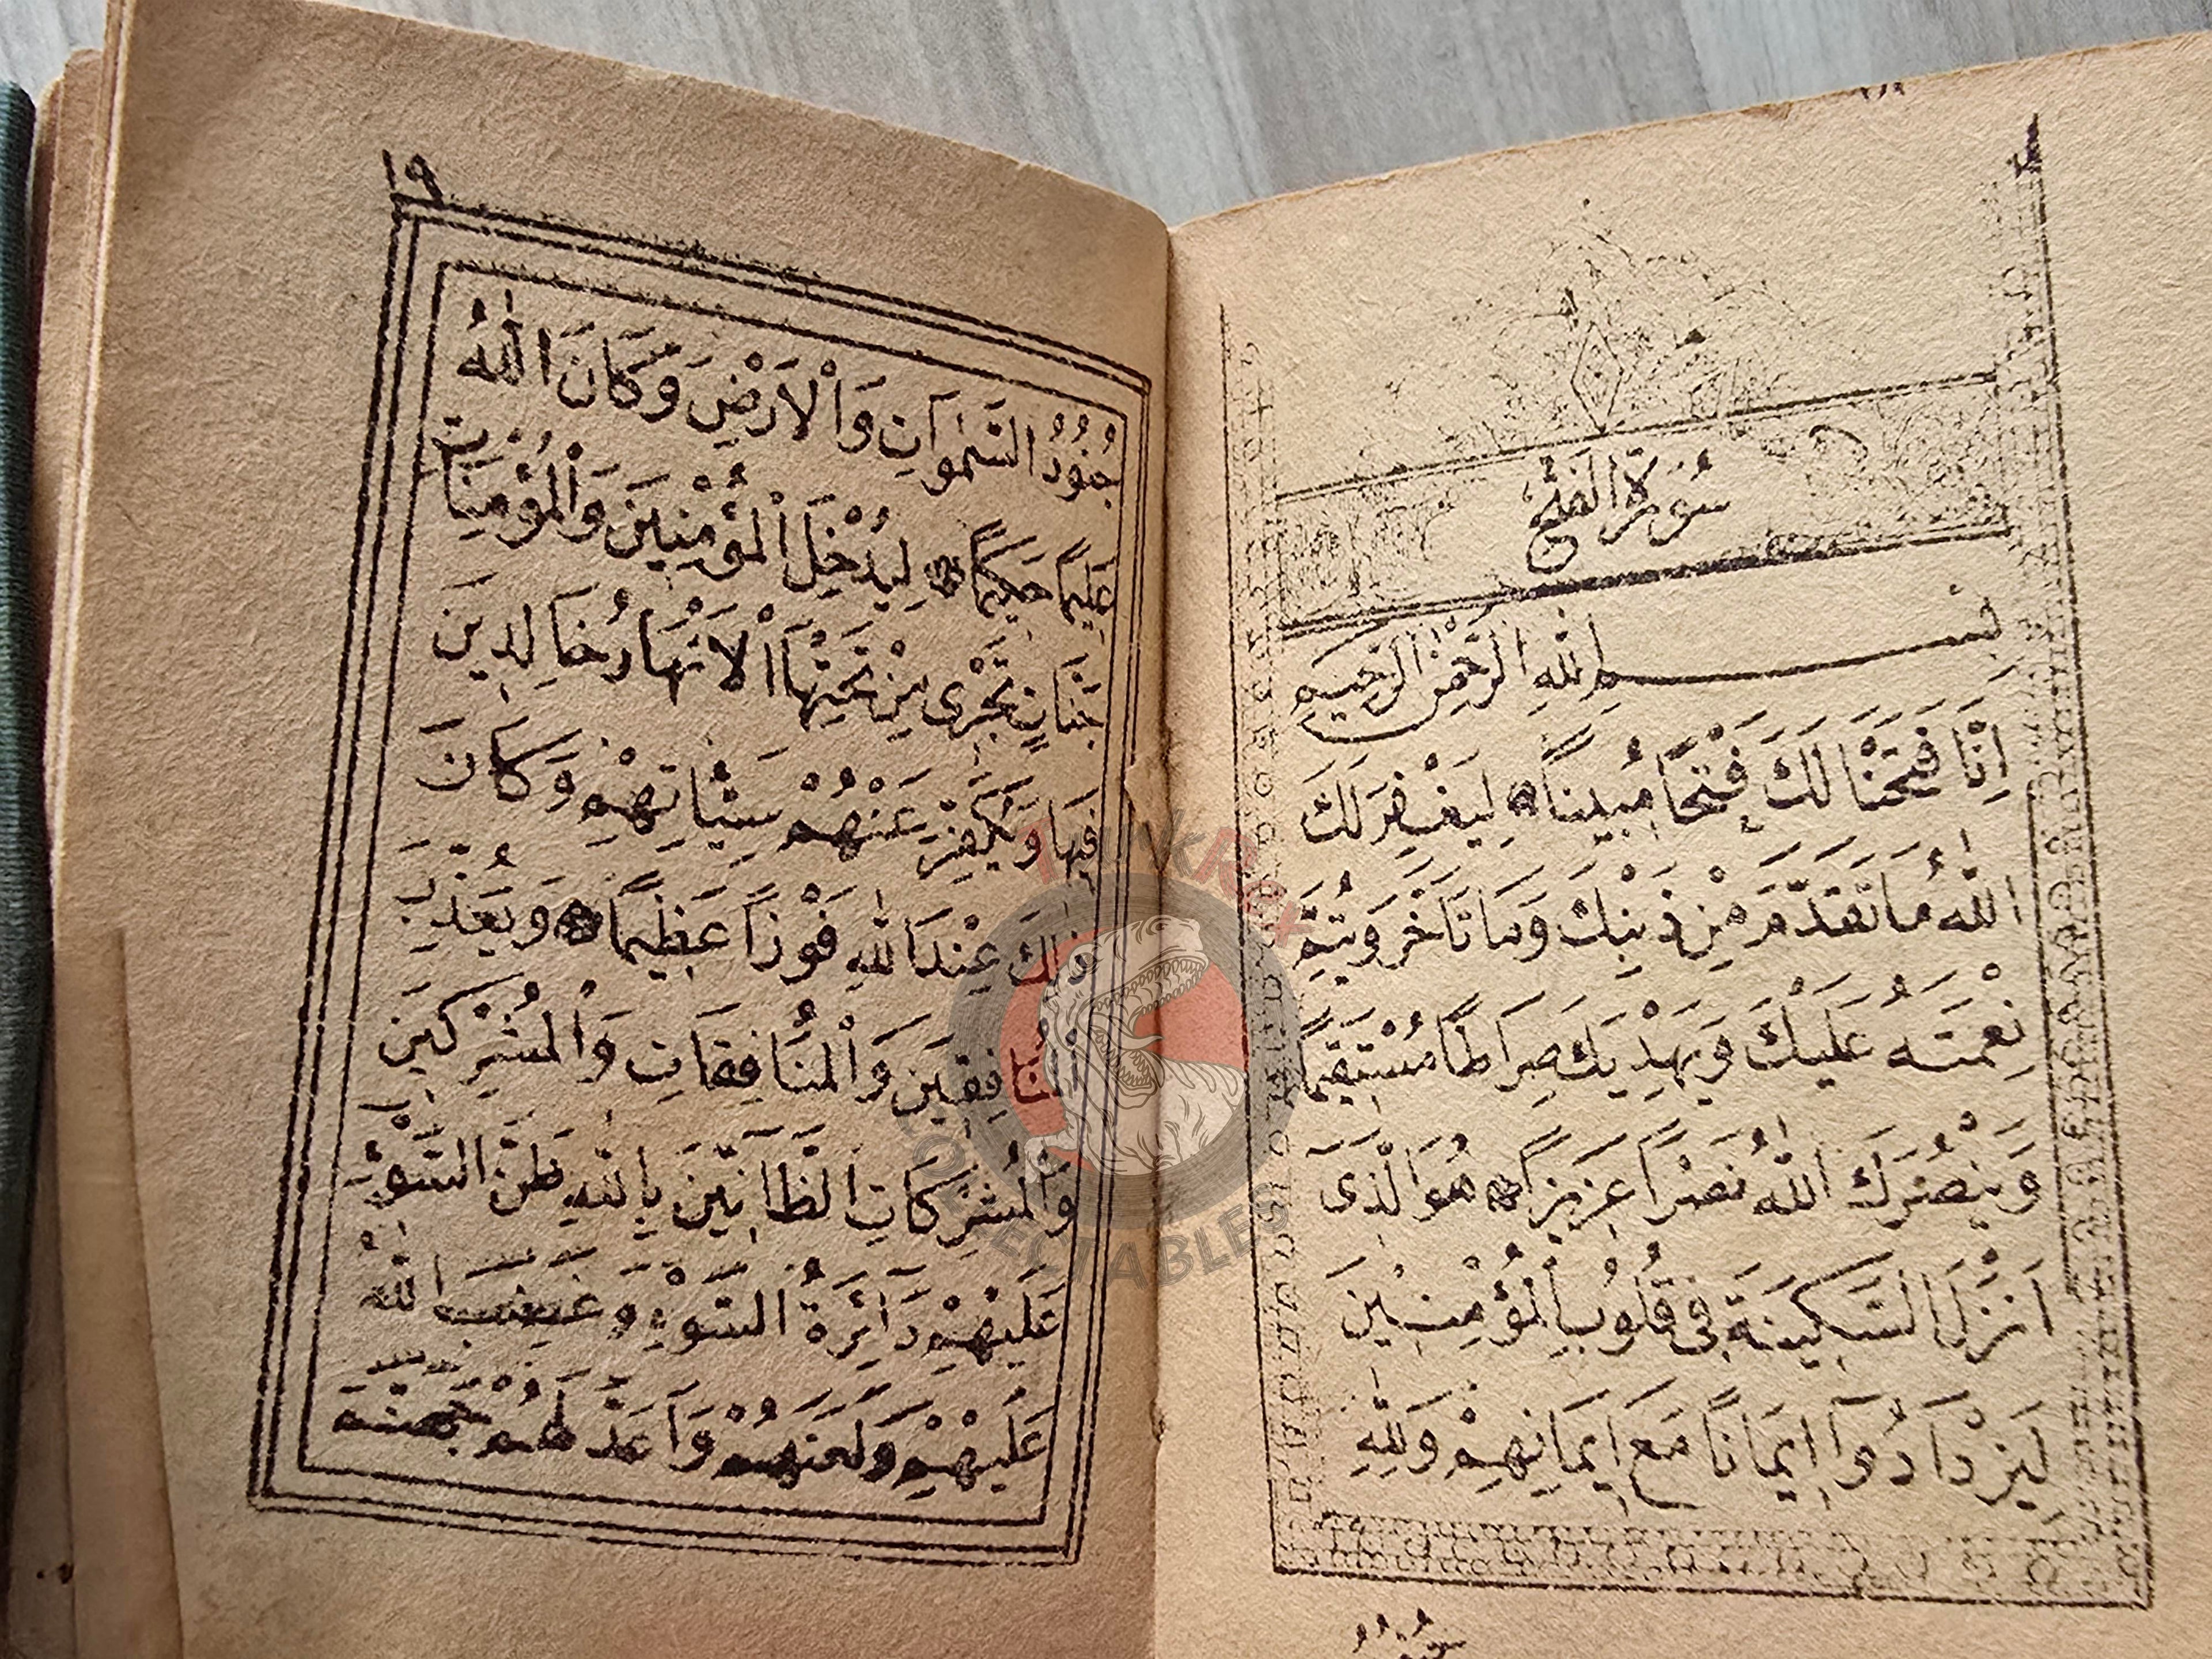 سُورَةُ الْفَتْحِ
بِسْمِ اللّٰهِ الرَّحْمٰنِ الرَّحِيمِ
اِنَّا فَتَحْنَا لَكَ فَتْحًا مُبِينًا لِيَغْفِرَ لَكَ
اللّٰهُ مَا تَقَدَّمَ مِنْ ذَنْبِكَ وَمَا تَاَخَّرَ وَيُتِمَّ
نِعْمَتَهُ عَلَيْكَ وَيَهْدِيَكَ صِرَاطًا مُسْتَقِيمًا
وَيَنْصُرَكَ اللّٰهُ نَصْرًا عَزِيزًا هُوَ الَّذِى
اَنْزَلَ السَّكِينَةَ فِى قُلُوبِ الْمُؤْمِنِينَ
لِيَزْدَادُوا اِيمَانًا مَعَ اِيمَانِهِمْ وَلِلّٰهِ
جُنُودُ
١٩
جُنُودُ السَّمٰوَاتِ وَالْاَرْضِ وَكَانَ اللّٰهُ
عَلِيمًا حَكِيمًا لِيُدْخِلَ الْمُؤْمِنِينَ وَالْمُؤْمِنَاتِ
جَنَّاتٍ تَجْرِى مِنْ تَحْتِهَا الْاَنْهَارُ خَالِدِينَ
فِيهَا وَيُكَفِّرَ عَنْهُمْ سَيِّئَاتِهِمْ وَكَانَ
ذٰلِكَ عِنْدَ اللّٰهِ فَوْزًا عَظِيمًا وَيُعَذِّبَ
الْمُنَافِقِينَ وَالْمُنَافِقَاتِ وَالْمُشْرِكِينَ
وَالْمُشْرِكَاتِ الظَّانِّينَ بِاللّٰهِ ظَنَّ السَّوْءِ
عَلَيْهِمْ دَائِرَةُ السَّوْءِ وَغَضِبَ اللّٰهُ
عَلَيْهِمْ وَلَعَنَهُمْ وَاَعَدَّ لَهُمْ جَهَنَّمَ
COLLECTABLES